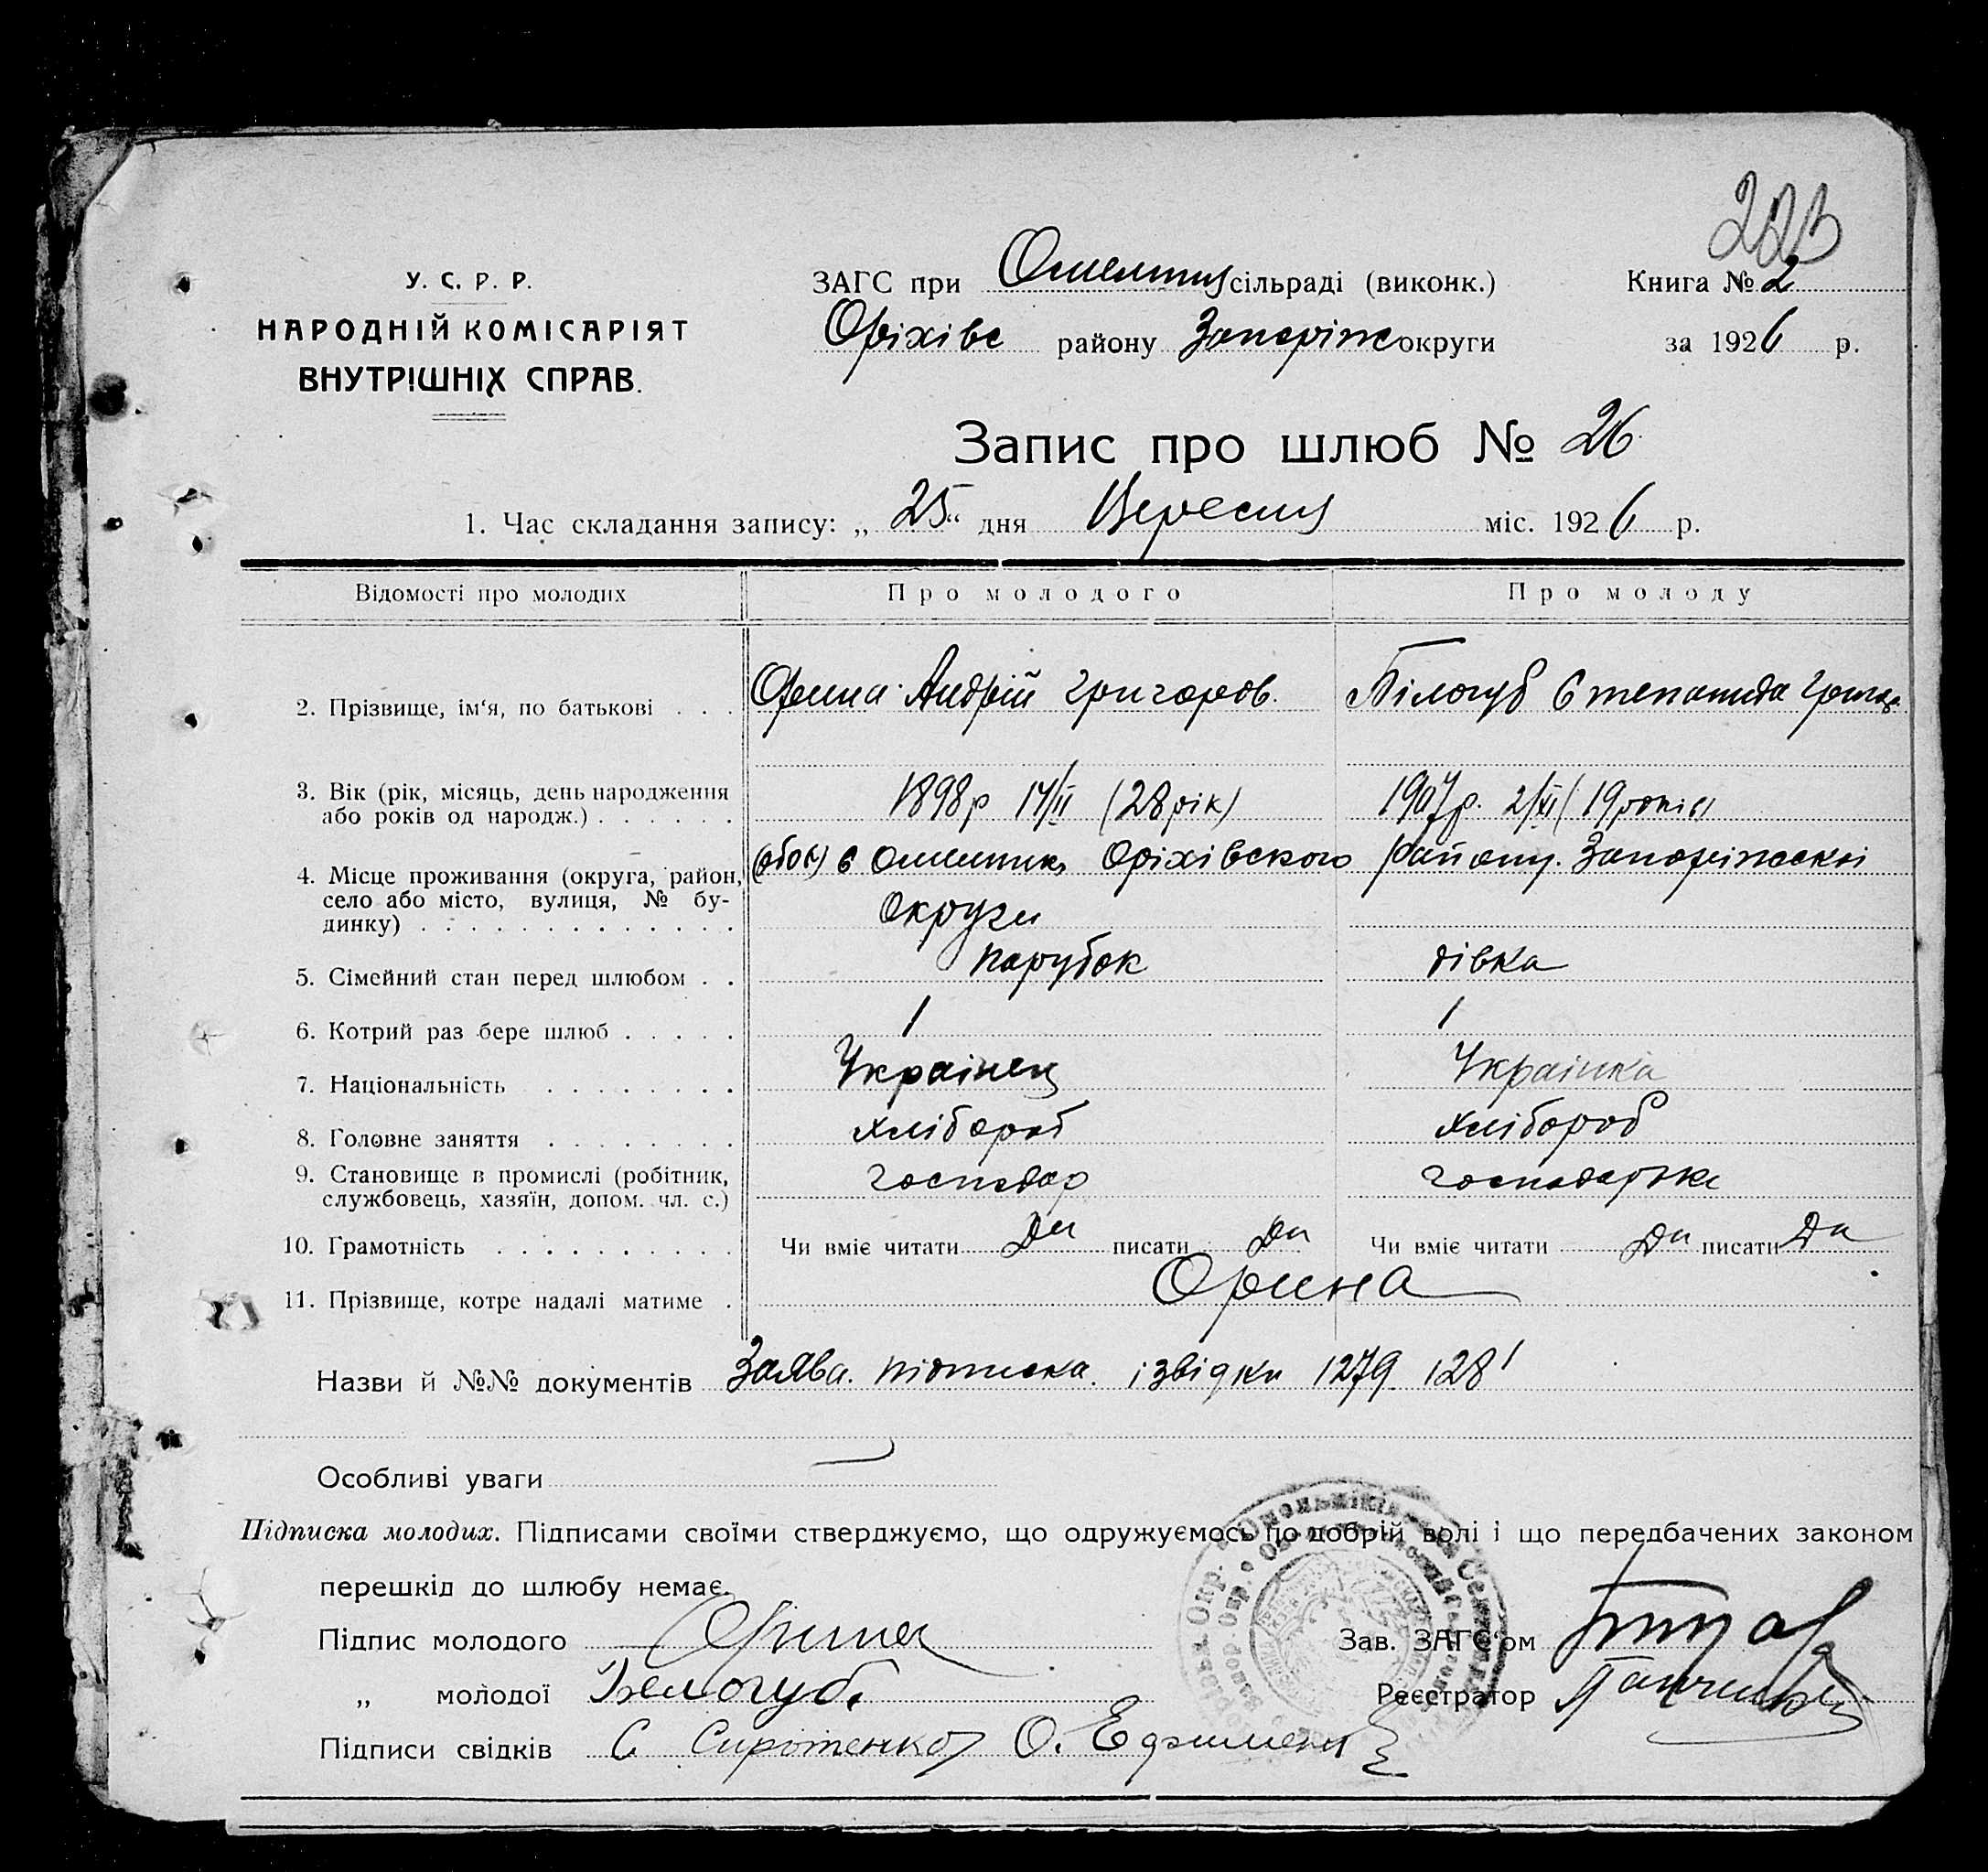 223
У. С. Р. Р.
НАРОДНІЙ КОМІСАРІЯТ
ВНУТРІШНІХ СПРАВ.
ЗАГС при Омельник сільраді (виконк.)
Оріхівс району Запоріж округи
Книга № 2
за 1926 р.
Запис про шлюб № 26
1. Час складання запису: „ 25 “ дня Вересня міс. 1926 р.
Відомості про молодих
Про молодого
Про молоду
2. Прізвище, ім‘я, по батькові . . .
Орина Андрій Григоров.
Білогуб Степанида Григор.
3. Вік (рік, місяць, день народження
або років од народж.) . . . . . .
1898р 17/II (28 рік)
1907р. 2/XI (19 років)
4. Місце проживання (округа, район,
село або місто, вулиця, № бу-
динку) . . . . . . . . . . . . .
(обоє) с Омельник Оріхівского району. Запоріжскої
округи
5. Сімейний стан перед шлюбом . .
парубок
дівка
6. Котрий раз бере шлюб . . . . .
1
1
7. Національність . . . . . . . .
Українец
Українка
8. Головне заняття . . . . . . . .
хлібороб
хлібороб
9. Становище в промислі (робітник,
службовець, хазяїн, допом. чл. с.)
господар
господарка
10. Грамотність . . . . . . . . . .
Чи вміє читати Да писати Да
Чи вміє читати Да писати Да
11. Прізвище, котре надалі матиме .
Орина
Назви й №№ документів Заява. підписка. і звідки 1279 1281
Особливі уваги
Підписка молодих. Підписами своїми стверджуємо, що одружуємось по добрій волі і що передбачених законом
перешкід до шлюбу немає.
Підпис молодого Орина
„ молодої Белогуб
Підписи свідків С Сиротенко О. Ефименк
Зав. ЗАГС‘ом
Реєстратор